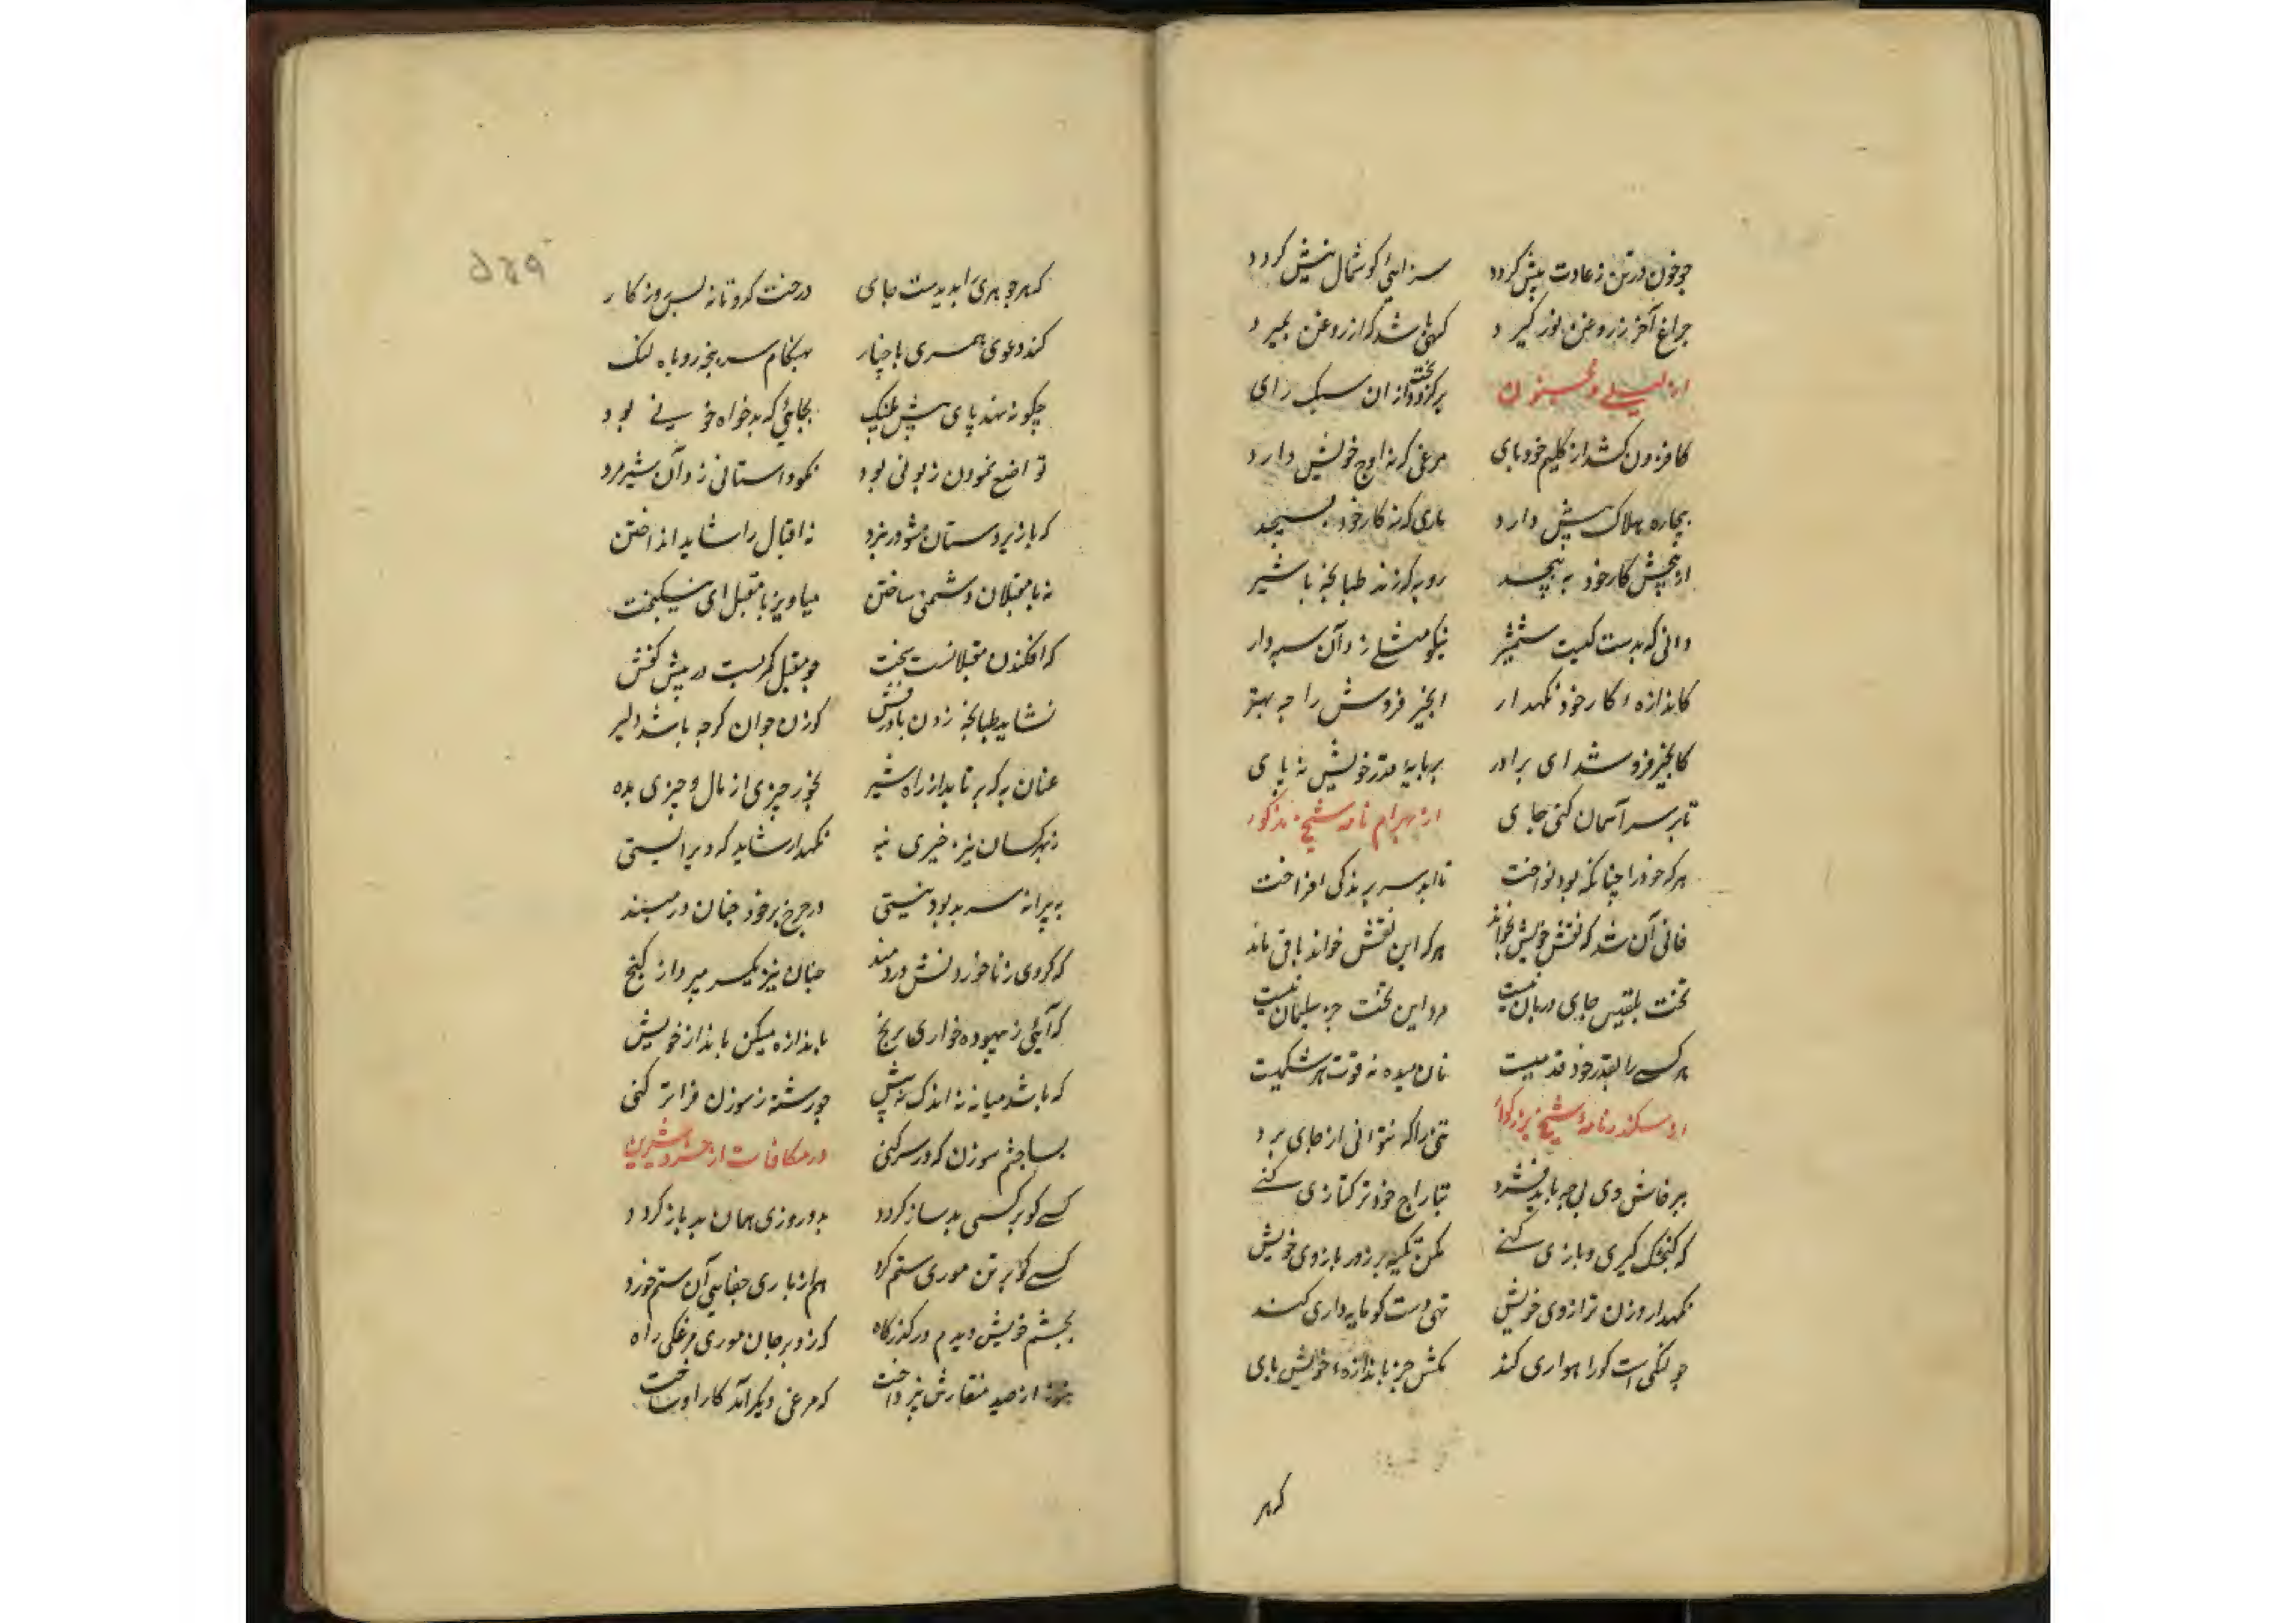 چو خون در تن ز عادت پیش کردد سزایی کوشمال نیش کردد
چراغ آخر ز روغن نور کیرد کهی باشد که از روغن بمیرد
از لیلی و مجنون برکردد بخت از ان سبک رای
کافزون کشد از کلیم خود پای مرغی که نه اوج خویش دارد
بیچاره هلاک پیش دارد ماری که نه کار خود بسیجد
از پیچش کار خود به پیچد روبه که زند طبانچه با شیر
دانی که بدست کیست شمشیر نیکو مثلی زد آن سپهدار
کاندازه ء کار خود نکهدار انجیر فروش را چه بهتر
کانجیر فروشد ای برادر بر پایهٔ قدر خویش نه پای
تا بر سر آسمان کنی جای از بهرام نامه شیخ مذکور
هر که خود را چنانکه بود نواخت تا ابد سر بزندکی افراخت
فانی آن شد که نقش خویش نخواند هر که این نقش خواند باقی ماند
تخت بلقیس جای دربان نیست مرد این تخت جز سلیمان نیست
هر کسی را بقدر خود قدمیست نان میده نه قوت هر شکمیست
از سکندرنامهٔ شیخ بزرکوار تنی را که نتوانی از جای برد
بپرخاش وی پی چه باید فشرد بتاراج خود ترکتازی کنی
که کنجشک کیری و بازی کنی مکن تکیه بر زور بازوی خویش
نکهدار وزن ترازوی خویش تهی دست کو مایه داری کند
چو لنکی است کو راهواری کند مکش جز باندازهء خویش پای
کهر
۵۴۹
کهر جوهری را بدیدست جای درخت کدو تا نه بس روزکار
کند دعوی همسری با چنار بهنکام سر پنجه روباه لنک
چکونه نهد پای پیش پلنک بجایی که بدخواه خونی بود
تواضع نمودن زبونی بود نمودار استانی زد آن شیرمرد
که با زیردستان مشو در نبرد نه اقبال را شاید انداختن
نه با مقبلان دشمنی ساختن میاویز با مقبل ای نیکبخت
که افکندن مقبلانست سخت چو مقبل کمر بست در پیش کفش
نشاید طبانچه زدن با درفش کوزن جوان کرچه باشد دلیر
عنان به که برتابد از راه شیر بخور چیزی از مال و چیزی بده
ز بهر کسان نیز چیزی بنه نکهدار شاید که دیر ایستی
به پیرانه سر بد بود نیستی در خرج بر خود چنان در مبند
که کردی ز ناخوردنش دردمند چنان نیز یکسر مپرداز کنج
که آیی ز بیهوده خواری برنج باندازه میکن بانداز خویش
که باشد میانه نه اندک نه بیش چو رشته ز سوزن فزاتر کنی
بسا چشم سوزن که در سر کنی در مکافات از خسرو شیرین
کسی کو بر کسی بد ساز کردد بدو روزی همان بد باز کردد
کسی کو بر تن موری ستم کرد هم از باری جفایی آن ستم خورد
بچشم خویش دیدم در کذرکاه که زد بر جان موری مرغکی راه
هنوز از صید منقارش نپرداخت که مرغی دیکر آمد کار او ساخت